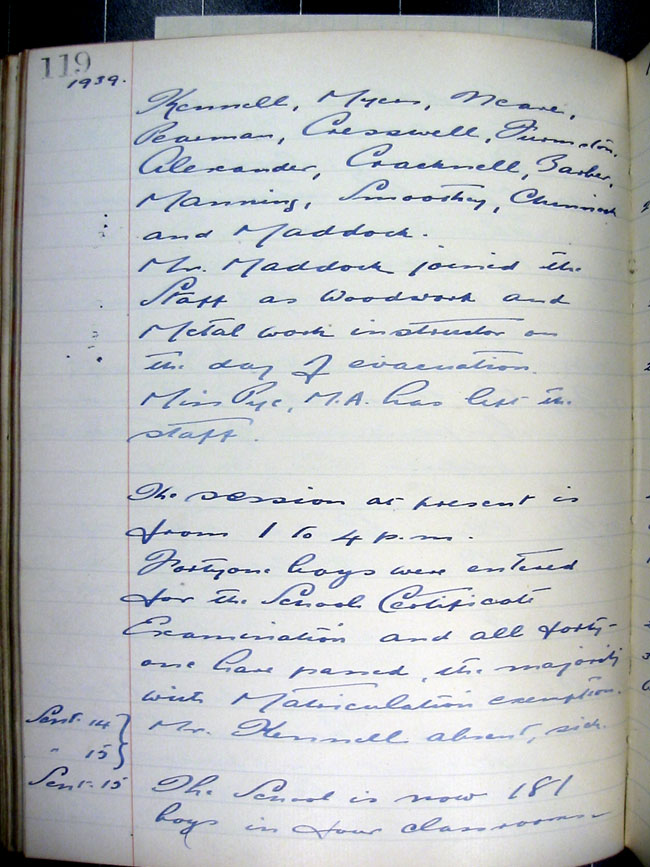 119
1939.
Kennell, Myers, Neave,
Pearman, Cresswell, Furmston,
Alexander, Cracknell, Barber,
Manning, Smoothy,
and Maddock.
Mr. Maddock joined the
Staff as Woodwork and
Metal work instructor on
the day of evacuation.
Miss Pye, M.A. has left the
staff.
The session at present is
from 1 to 4 p.m.
Fortyone boys were entered
for the School Certificate
Examination and all forty-
one have passed, the majority
with Matriculation exemption.
Sept. 14 } Mr. Kennell absent, sick.
" 15 }
Sept. 15 The School is now 181
boys in four classrooms